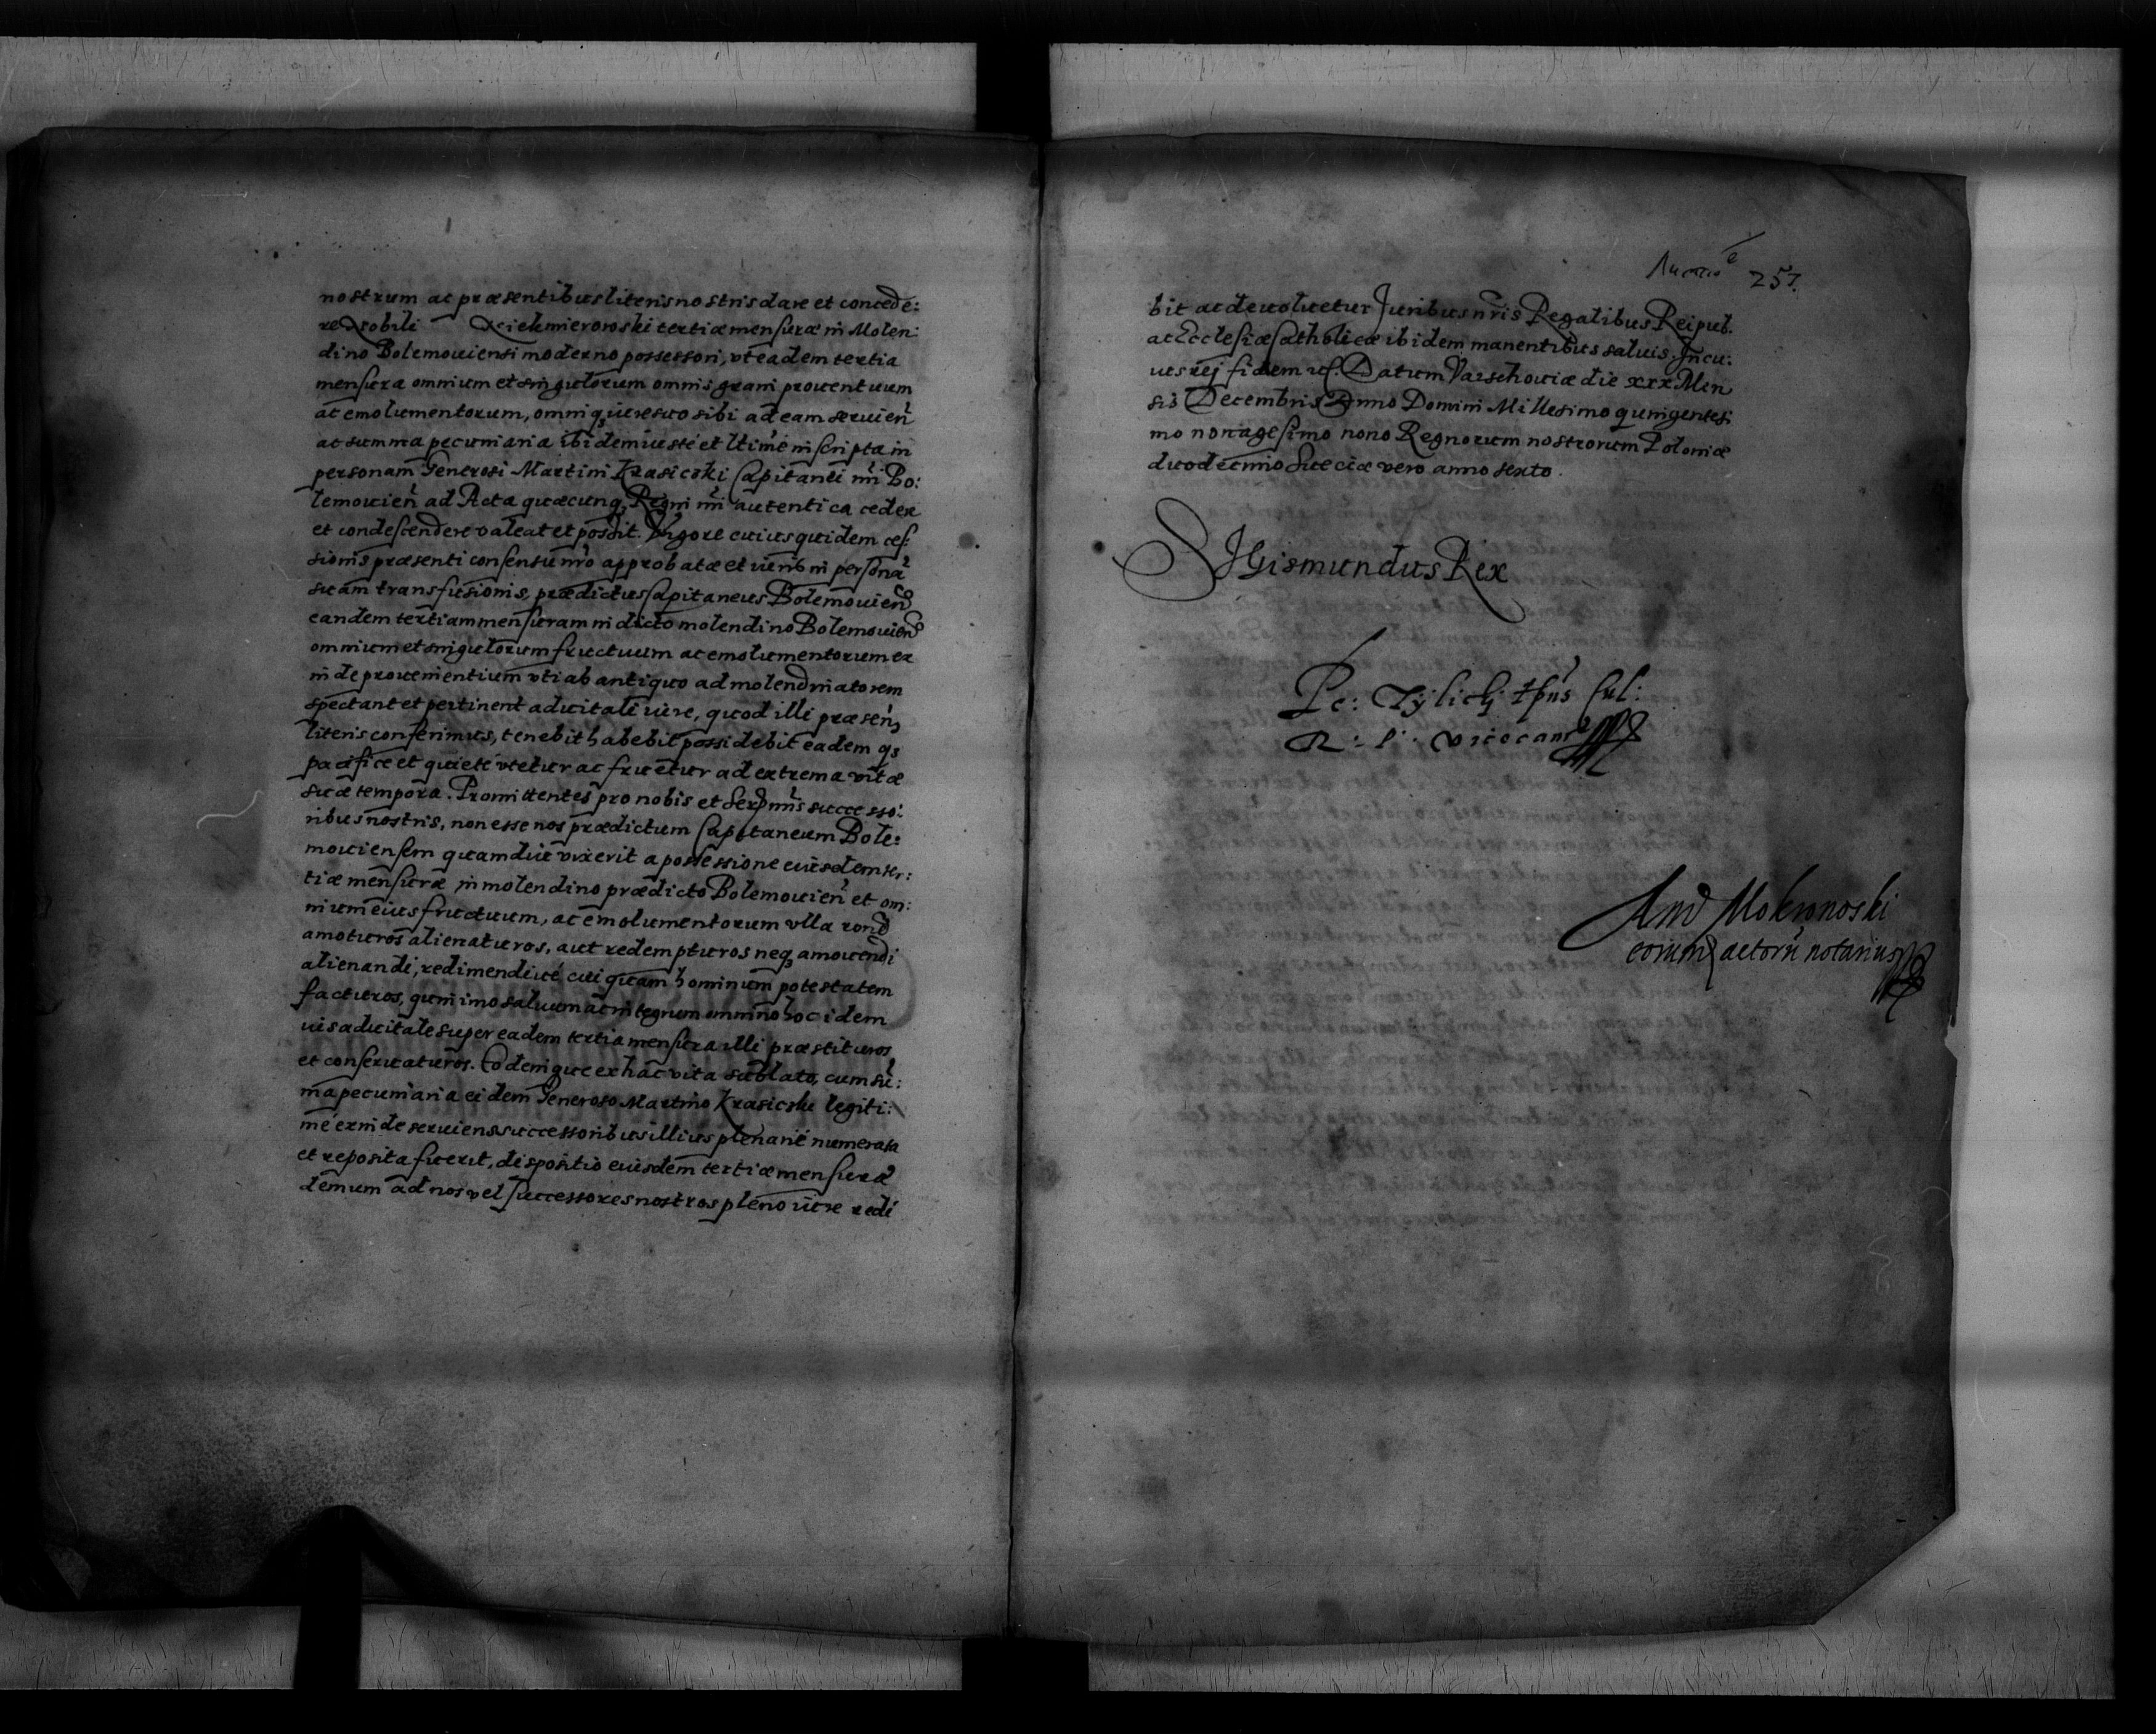 nostrum ac præsentibus literis nostris dare et concede:
re Nobili Xiekmierowski tertiæ mensuræ in Molen:
dino Bolemouiensi moderno possessori, vt eadem tertia
mensura omnium et singulorum omnis grani prouentuum
ac emolumentorum, omniq; iure suo sibi ad eam seruien
ac summa pecuniaria ibidem iuste et ltime inscripta in
personam Generosi Martini Krasicski Capitanei nri Bo:
lemouien ad Acta quæcunq; Regni nri autentica cedere
et condescendere valeat et possit. Vigore cuius quidem ces:
sionis præsenti consensu nro approbatæ et iurib in persona
suam transfusionis, prædictus Capitaneus Bolemouien
eandem tertiam mensuram in dicto molendino Bolemouien
omnium et singulorum fructuum ac emolumentorum ex
inde prouenientium vti ab antiquo ad molendinatorem
spectant et pertinent aduitali iure, quod illi præsen
literis conferimus, tenebit habebit possidebit eadem q3
pacifice et quiete vtetur ac fruetur ad extrema vitæ
suæ tempora. Promittentes pro nobis et Serpmis successo:
ribus nostris, non esse nos prædictum Capitaneum Bole:
mouiensem quamdiu vixerit a possessione eiusdem ter:
tiæ mensuræ in molendino prædicto Bolemouien et om:
nium eius fructuum, ac emolumentorum vlla rone
amoturos alienaturos, aut redempturos neq3 amouendi
alienandi, redimendiue cuiquam hominum potestatem
facturos, quinimo saluum ac integrum omnino hoc idem
ius aduitale super eadem tertia mensura illi præstituros
et conseruaturos. Eodemque ex hac vita sublato, cum sū:
ma pecuniaria eidem Generoso Martino Krasicski legiti:
me exinde seruiens successoribus illius plenarie numerata
et reposita fuerit, dispositio eiusdem tertiæ mensuræ
demum ad nos vel successores nostros pleno iure redi
257.
bit ac deuoluetur Juribus nris Regalibus Reipub.
ac Ecclesiæ Catholicæ ibidem manentibus saluis. In cu:
ius rej fidem Datum Varschouiæ die xxx Men
sis Decembris Anno Domini Millesimo quingentesi
mo nonagesimo nono Regnorum nostrorum Poloniæ
duodecimo Sueciæ vero anno sexto.
Sigismundus Rex
Pe: Tijlicki Epūs Cul:
R: P: vicecan
And Mokronoski
eorund actorū notarius